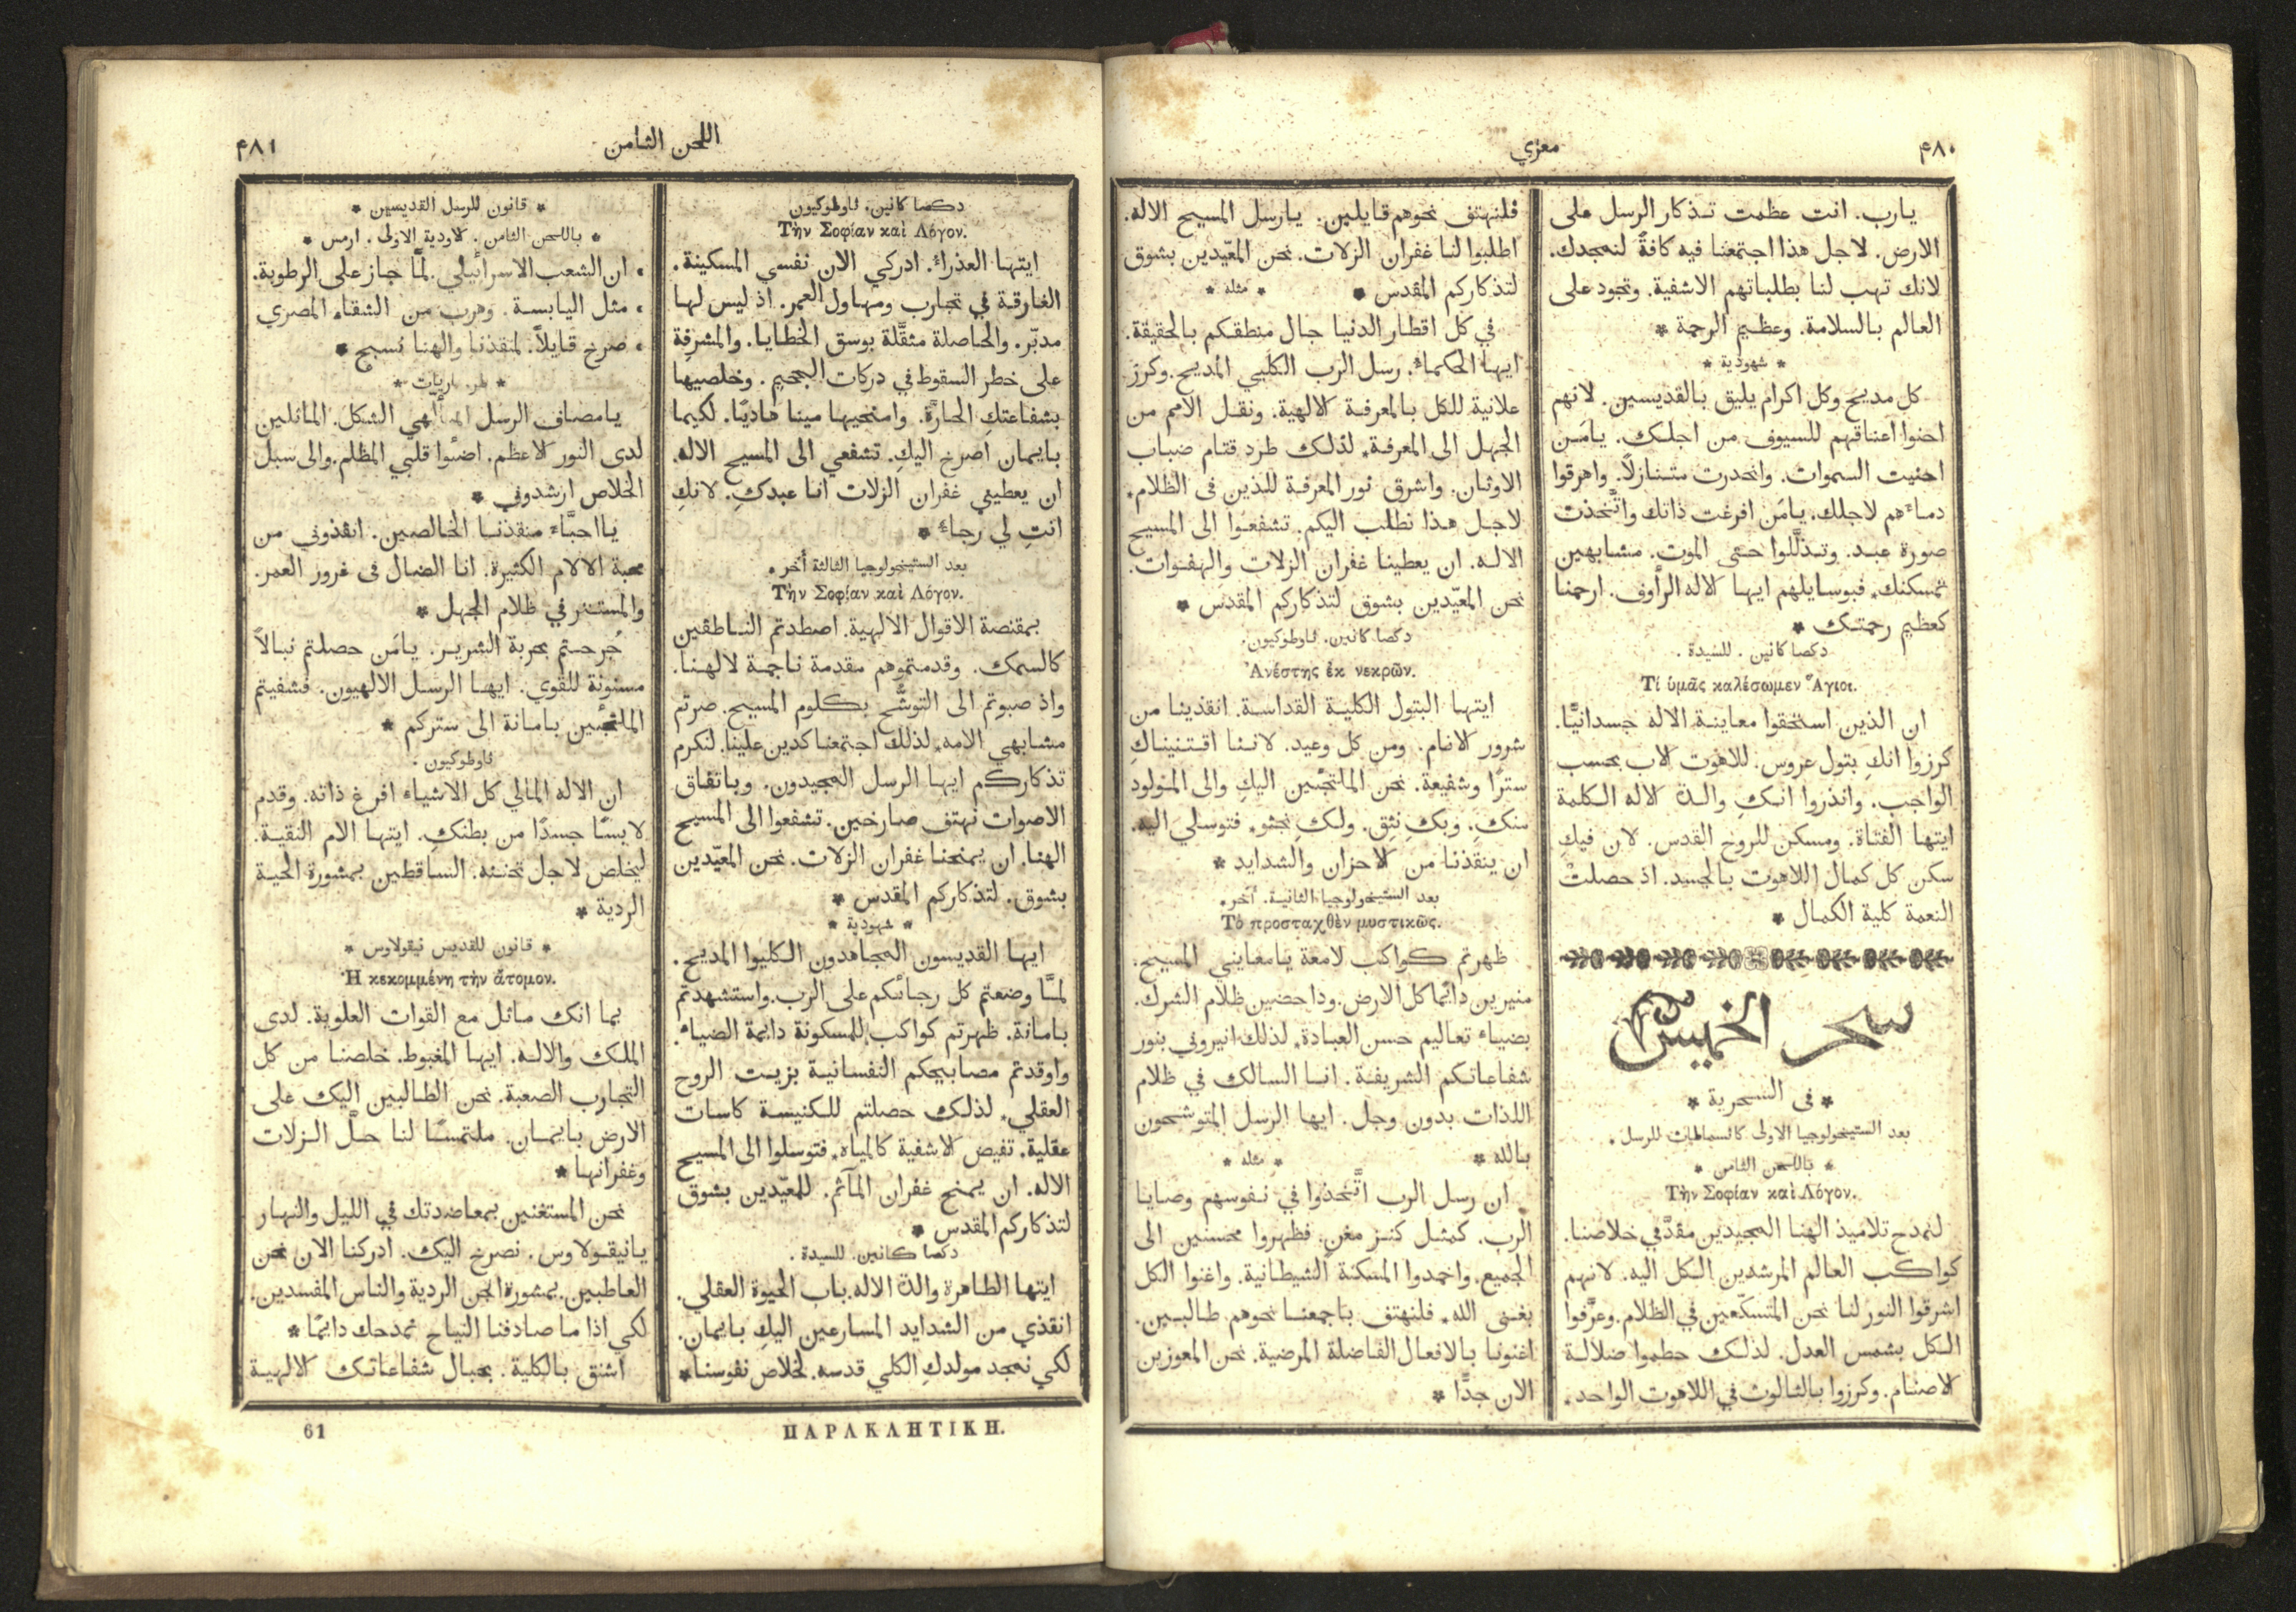 ۴٨٠
معزي
يارب. انت عظمت تذكار الرسل على
الارض. لاجل هذا اجتمعنا فيه كافةً لنمجدك.
لانك تهب لنا بطلباتهم الاشفية. وتجود على
العالم بالسلامة. وعظيم الرحمة *
* شهودية *
كل مديح وكل اكرام يليق بالقديسين. لانهم
احنوا اعناقهم للسيوف من اجلك. يامَن
احنيت السموات. وانحدرت متنازلاً. واهرقوا
دماءهم لاجلك. يامَن افرغت ذاتك واتَّخذت
صورة عبد. وتذلَّلوا حتى الموت. مشابهين
تمسكنك. فبوسايلهم ايها الاله الرَّأوف. ارحمنا
كعظيم رحمتك *
دكصا كانين. للسيدة.
Τί ὑμᾶς καλέσωμεν Ἅγιοι.
ان الذين استحقوا معاينة الاله جسدانيًّا.
كرزوا انكِ بتول عروس. للاهوت الاب بحسب
الواجب. وانذروا انكِ والدة الاله الكلمة
ايتها الفتاة. ومسكن للروح القدس. لان فيكِ
سكن كل كمال اللاهوت بالجسد. اذ حصلتْ
النعمة كلية الكمال *
سحر الخميس
* في السحرية *
بعد الستيخولوجيا الاولى كاتسماطيات للرسل.
* باللحن الثامن *
Τὴν Σοφίαν καὶ Λόγον.
لنمدح تلاميذ الهنا المجيدين مقدَّمي خلاصنا.
كواكب العالم المرشدين الكل اليه. لانهم
اشرقوا النور لنا نحن المتسكّعين في الظلام. وعرَّفوا
الكل بشمس العدل. لذلك حطموا ضلالة
الاصنام. وكرزوا بالثالوث في اللاهوت الواحد.
فلنهتف نحوهم قايلين. يارسل المسيح الاله.
اطلبوا لنا غفران الزلات. نحن المعيّدين بشوق
لتذكاركم المقدس * * مثله *
في كل اقطار الدنيا جال منطقكم بالحقيقة.
ايها الحكماء. رسل الرب الكليي المديح. وكرز
علانية للكل بالمعرفة الالهية. ونقل الامم من
الجهل الى المعرفة. لذلك طرد قتام ضباب
الاوثان. واشرق نور المعرفة للذين في الظلام.
لاجل هذا نطلب اليكم. تشفعوا الى المسيح
الاله. ان يعطينا غفران الزلات والهفوات.
نحن المعيّدين بشوق لتذكاركم المقدس *
دكصا كانين. ثاوطوكيون.
Ἀνέστης ἐκ νεκρῶν.
ايتها البتول الكلية القداسة. انقذينا من
شرور الانام. ومن كل وعيد. لاننا اقتنيناكِ
سترًا وشفيعة. نحن الملتجئين اليكِ والى المولود
منكِ. وبكِ نثِق. ولكِ نجثو. فتوسلي اليه.
ان ينقذنا من الاحزان والشدايد *
بعد الستيخولوجيا الثانية. أخر.
Τὸ προσταχθὲν μυστικῶς.
ظهرتم كواكب لامعة يامعايني المسيح.
منيرين دائما كل الارض. وداحضين ظلام الشرك.
بضياء تعاليم حسن العبادة. لذلك انيروني بنور
شفاعاتكم الشريفة. انا السالك في ظلام
اللذات بدون وجل. ايها الرسل المتوشحون
بالله * * مثله *
ان رسل الرب اتَّخذوا في نفوسهم وصايا
الرب. كمثل كنز مغنٍ. فظهروا محسنين الى
الجميع. واخمدوا المسكنة الشيطانية. واغنوا الكل
بغنى الله. فلنهتف باجمعنا نحوهم طالبين.
اغنونا بالافعال الفاضلة المرضية. نحن المعوزين
الان جدًّا *
اللحن الثامن
۴٨١
دكصا كانين. ثاوطوكيون
Τὴν Σοφίαν καὶ Λόγον.
ايتها العذراء. ادركي الان نفسي المسكينة.
الغارقة في تجارب ومهاول العمر. اذ ليس لها
مدبّر. والحاصلة مثقَّلة بوسق الخطايا. والمشرفة
على خطر السقوط في دركات الجحيم. وخلصيها
بشفاعتكِ الحارَّة. وامنحيها مينا هاديًا. لكيما
بايمان اصرخ اليكِ. تشفعي الى المسيح الاله.
ان يعطيني غفران الزلات انا عبدكِ. لانكِ
انتِ لي رجاء *
بعد الستيخولوجيا الثالثة أخر.
Τὴν Σοφίαν καὶ Λόγον.
بمقنصة الاقوال الالهية. اصطدتم الناطقين
كالسمك. وقدمتموهم مقدمة ناجمة لالهنا.
واذ صبوتم الى التوشُّح بكلوم المسيح. صرتم
مشابهي الامه. لذلك اجتمعنا كدين علينا. لنكرم
تذكاركم ايها الرسل المجيدون. وباتفاق
الاصوات نهتف صارخين. تشفعوا الى المسيح
الهنا. ان يمنحنا غفران الزلات. نحن المعيّدين
بشوق. لتذكاركم المقدس *
* شهودية *
ايها القديسون المجاهدون الكليوا المديح.
لمَّا وضعتم كل رجائكم على الرب. واستشهدتم
بامانة. ظهرتم كواكب للمسكونة دايمة الضياء.
واوقدتم مصابيحكم النفسانية بزيت الروح
العقلي. لذلك حصلتم للكنيسة كاسات
عقلية. تفيض الاشفية كالمياه. فتوسلوا الى المسيح
الاله. ان يمنح غفران المآثم. للمعيّدين بشوق
لتذكاركم المقدس *
دكصا كانين. للسيدة.
ايتها الطاهرة والدة الاله. باب الحيوة العقلي.
انقذي من الشدايد المسارعين اليكِ بايمان.
لكي نمجد مولدكِ الكلي قدسه. لخلاص نفوسنا *
* قانون للرسل القديسين *
* باللحن الثامن. الاودية الاولى. ارمس *
، ان الشعب الاسرائيلي. لمَّا جاز على الرطوبة.
، مثل اليابسة. وهرب من الشقاء المصري
، صرخ قايلاً. لمنقذنا والهنا نسبح *
يامصاف الرسل المتألهي الشكل. الماثلين
لدى النور الاعظم. اضئوا قلبي المظلم. والى سبل
الخلاص ارشدوني *
يااحبَّاء منقذنا الخالصين. انقذوني من
محبة الالام الكثيرة. انا الضال في غرور العمر.
والمستتر في ظلام الجهل *
جُرحتم بحربة الشرير. يامَن حصلتم نبالاً
مسنونة للقوي. ايها الرسل الالهيون. فشفيتم
الملتجئين بامانة الى ستركم *
ثاوطوكيون.
ان الاله المالي كل الاشياء افرغ ذاته. وقدم
لابسًا جسدًا من بطنكِ. ايتها الام النقية.
ليخلص لاجل تحننه. الساقطين بمشورة الحية
الردية *
* قانون للقديس نيقولاوس *
Ἡ κεκομμένη τὴν ἄτομον.
بما انك ماثل مع القوات العلوية. لدى
الملك والاله. ايها المغبوط. خلصنا من كل
التجارب الصعبة. نحن الطالبين اليك على
الارض بايمان. ملتمسًا لنا حلَّ الزلات
وغفرانها *
نحن المستغنين بمعاضدتك في الليل والنهار
يانيقولاوس. نصرخ اليك. ادركنا الان نحن
العاطبين. بمشورة الجن الردية والناس المفسدين.
لكي اذا ما صادفنا النياح نمدحك دايمًا *
اشنق بالكلية. بحبال شفاعاتك الالهية
ΠΑΡΑΚΛΗΤΙΚΗ.
61